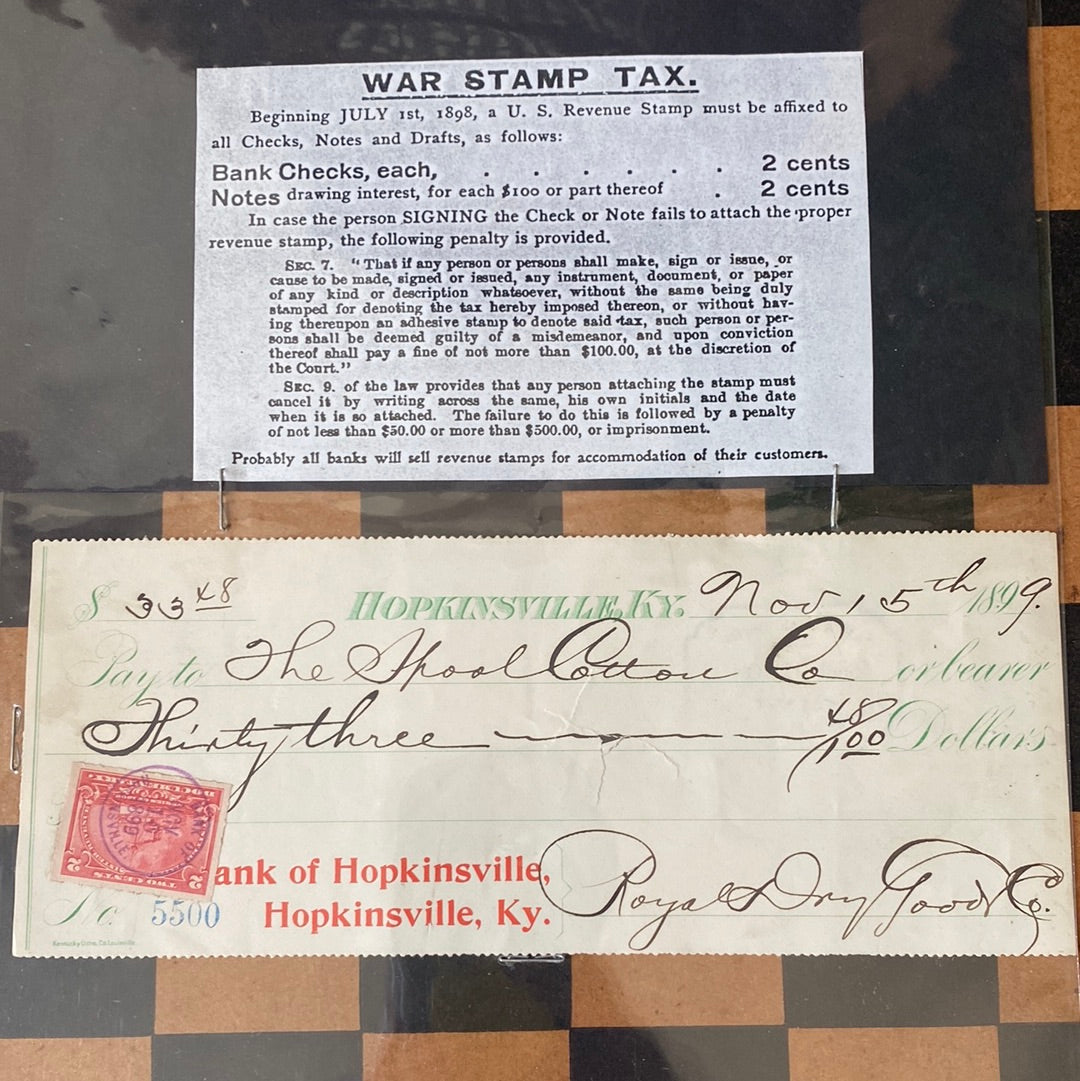 WAR STAMP TAX.
Beginning JULY 1st, 1898, a U. S. Revenue Stamp must be affixed to
all Checks, Notes and Drafts, as follows:
Bank Checks, each, . . . . . . 2 cents
Notes drawing interest, for each $100 or part thereof . 2 cents
In case the person SIGNING the Check or Note fails to attach the proper
revenue stamp, the following penalty is provided.
SEC. 7. "That if any person or persons shall make, sign or issue, or
cause to be made, signed or issued, any instrument, document, or paper
of any kind or description whatsoever, without the same being duly
stamped for denoting the tax hereby imposed thereon, or without hav-
ing thereupon an adhesive stamp to denote said tax, such person or per-
sons shall be deemed guilty of a misdemeanor, and upon conviction
thereof shall pay a fine of not more than $100.00, at the discretion of
the Court."
SEC. 9. of the law provides that any person attaching the stamp must
cancel it by writing across the same, his own initials and the date
when it is so attached. The failure to do this is followed by a penalty
of not less than $50.00 or more than $500.00, or imprisonment.
Probably all banks will sell revenue stamps for accommodation of their customers.
$ 33 48 HOPKINSVILLE, KY. Nov 15th 1899.
Pay to The Spool Cotton Co or bearer
Thirty three 48/100 Dollars
DOCUMENTARY
2 2
TWO CENTS
ank of Hopkinsville,
Hopkinsville, Ky.
Royal Dry Goods Co.
No. 5500